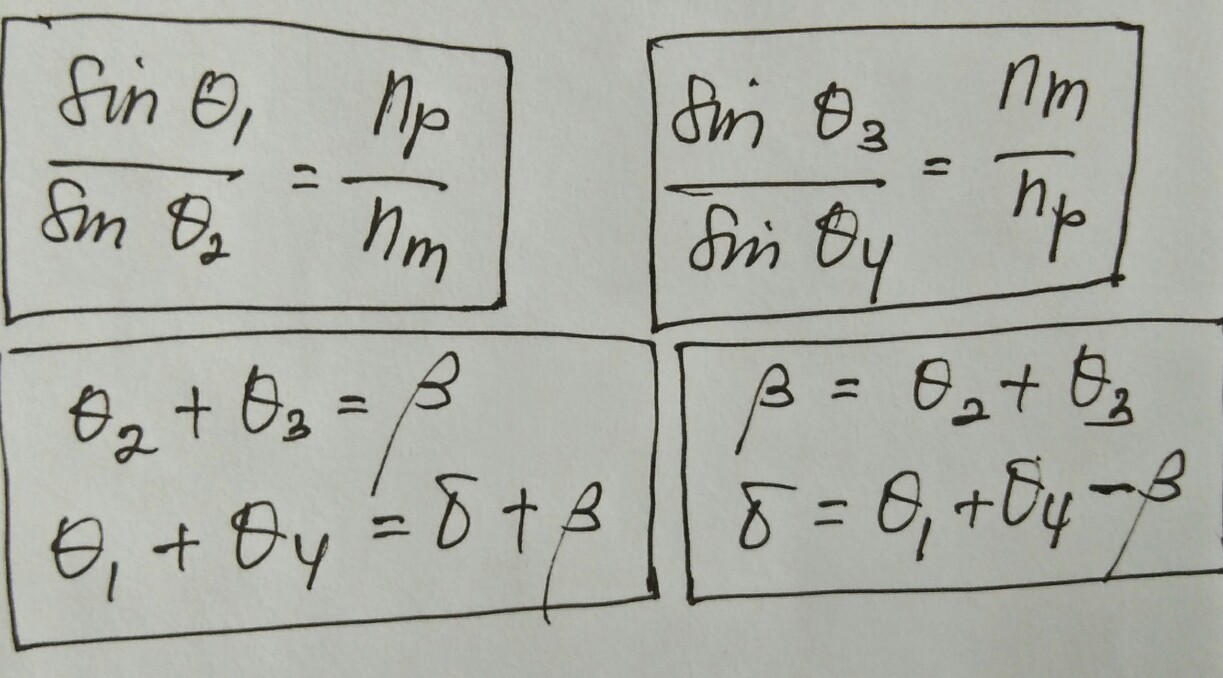 sin θ₁ / sin θ₂ = nₚ / nₘ
sin θ₃ / sin θ₄ = nₘ / nₚ
θ₂ + θ₃ = β
θ₁ + θ₄ = δ + β
β = θ₂ + θ₃
δ = θ₁ + θ₄ - β